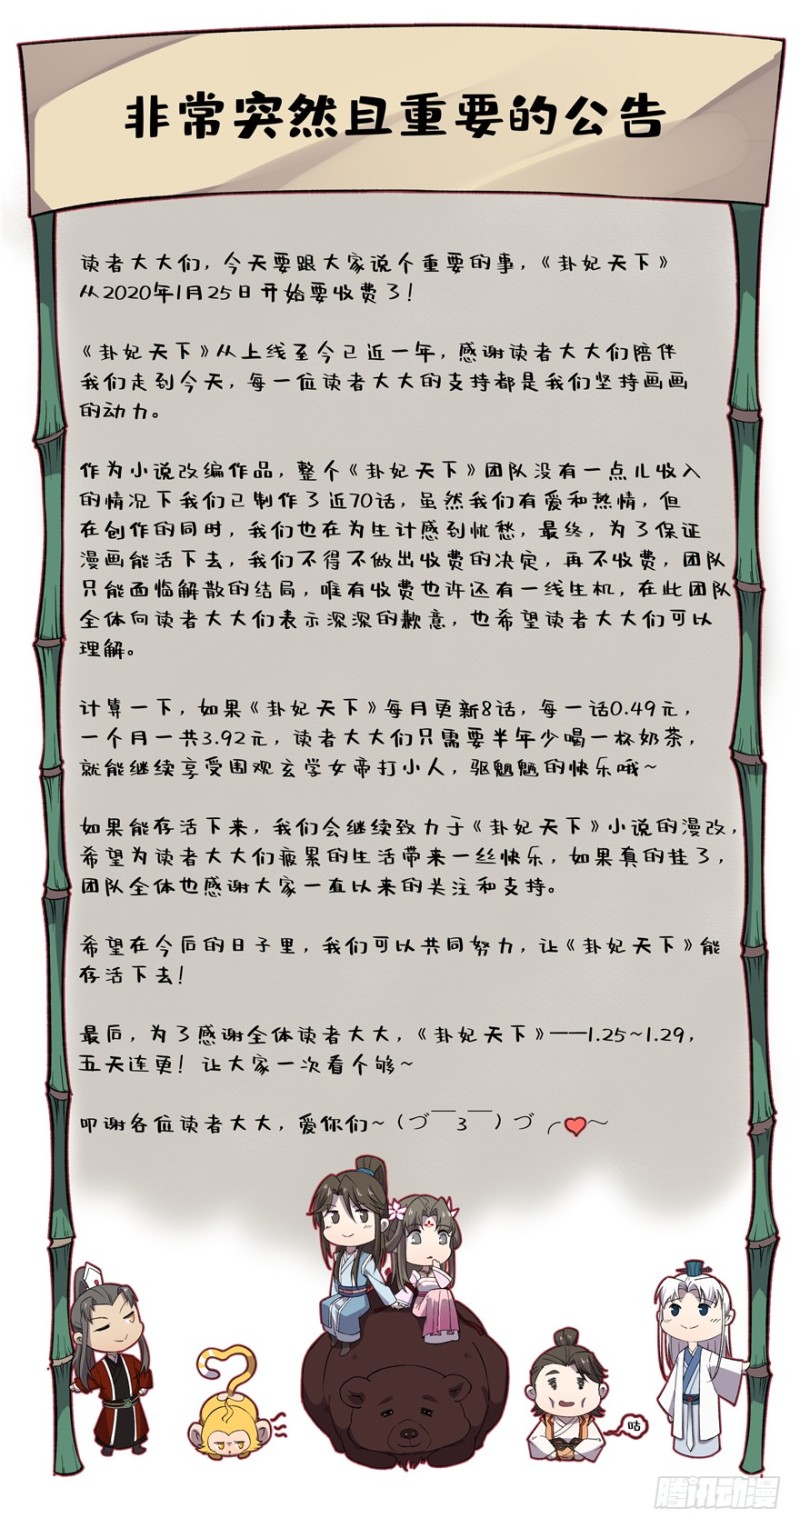 非常突然且重要的公告
读者大大们，今天要跟大家说个重要的事，《卦妃天下》
从2020年1月25日开始要收费了！
《卦妃天下》从上线至今已近一年，感谢读者大大们陪伴
我们走到今天，每一位读者大大的支持都是我们坚持画画
的动力。
作为小说改编作品，整个《卦妃天下》团队没有一点儿收入
的情况下我们已制作了近70话，虽然我们有爱和热情，但
在创作的同时，我们也在为生计感到忧愁，最终，为了保证
漫画能活下去，我们不得不做出收费的决定，再不收费，团队
只能面临解散的结局，唯有收费也许还有一线生机，在此团队
全体向读者大大们表示深深的歉意，也希望读者大大们可以
理解。
计算一下，如果《卦妃天下》每月更新8话，每一话0.49元，
一个月一共3.92元，读者大大们只需要半年少喝一杯奶茶，
就能继续享受围观玄学女帝打小人，驱魍魉的快乐哦~
如果能存活下来，我们会继续致力于《卦妃天下》小说的漫改，
希望为读者大大们疲累的生活带来一丝快乐，如果真的挂了，
团队全体也感谢大家一直以来的关注和支持。
希望在今后的日子里，我们可以共同努力，让《卦妃天下》能
存活下去！
最后，为了感谢全体读者大大，《卦妃天下》——1.25~1.29，
五天连更！让大家一次看个够~
叩谢各位读者大大，爱你们~（づ￣3￣）づ╭❤～
咕
腾讯动漫